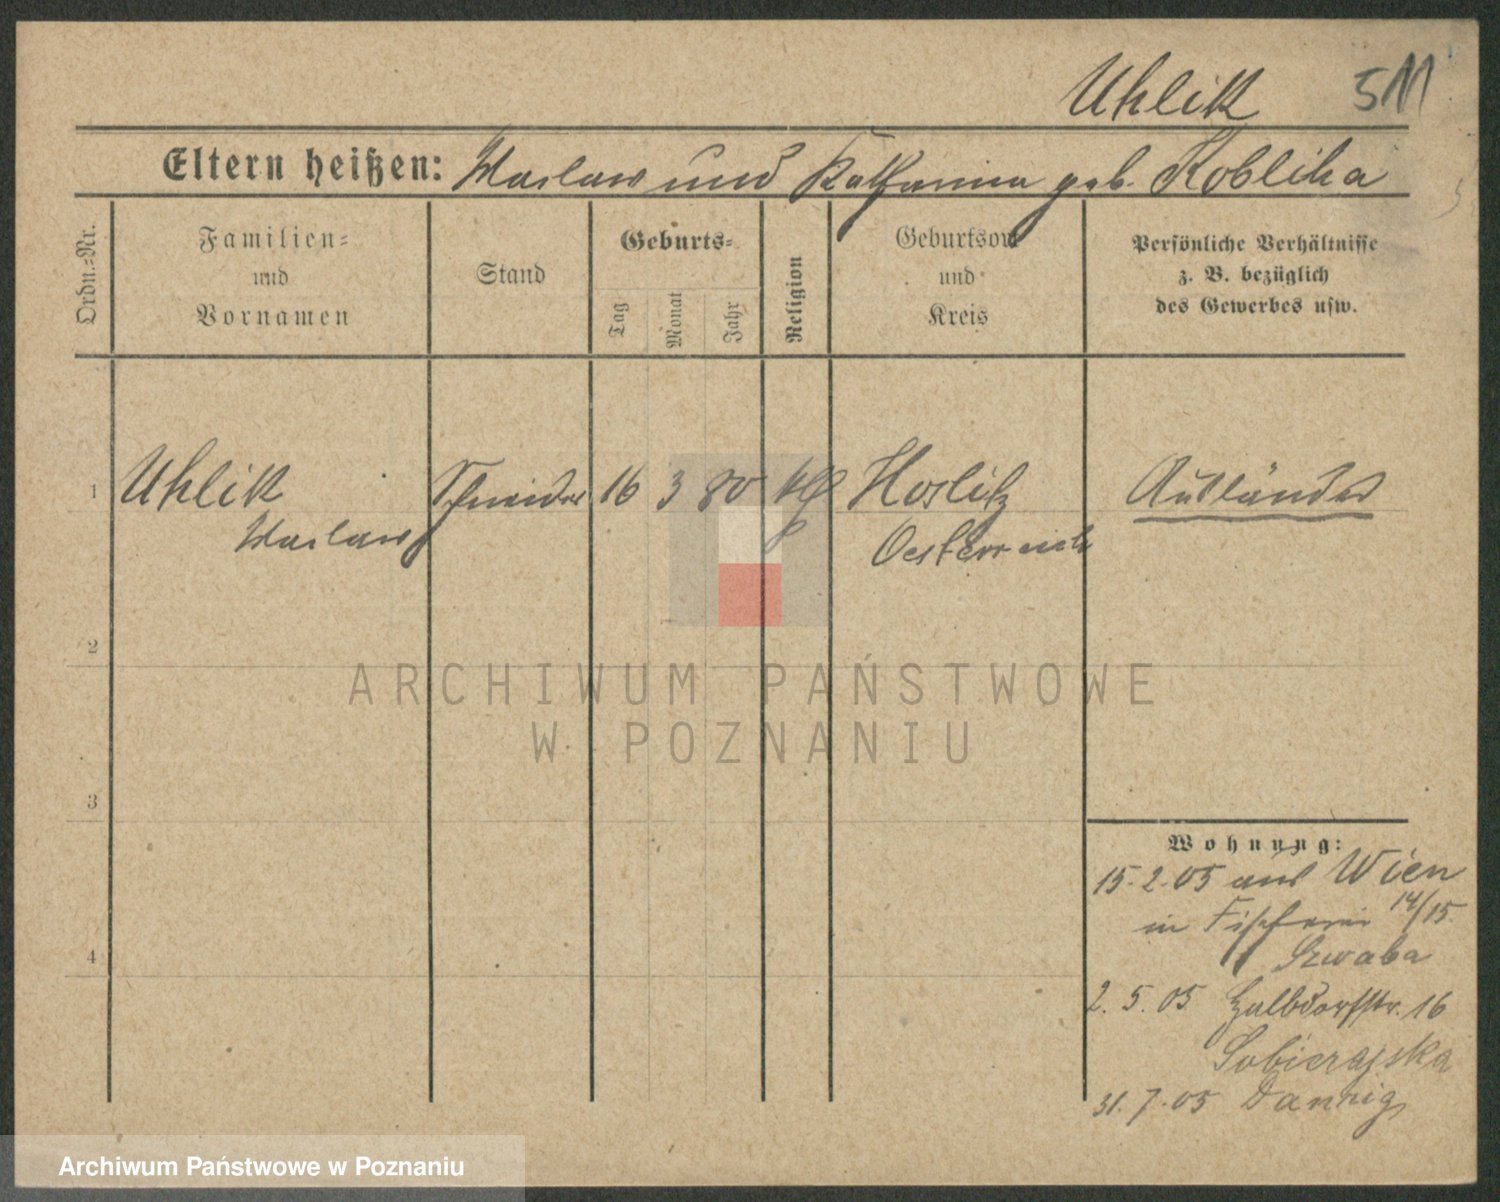 Uhlik 511
Eltern heißen: Waclaw und Katharina geb. Kobliha
Ordn.-Nr.
Familien-
und
Vornamen
Stand
Geburts-
Tag
Monat
Jahr
Religion
Geburtsort
und
Kreis
Persönliche Verhältnisse
z. B. bezüglich
des Gewerbes usw.
1 Uhlik Schneider 16 3 80 kth Horlitz Ausländer
Waclaw Oesterreich
2
ARCHIWUM PAŃSTWOWE
W POZNANIU
3
Wohnung:
15.2.05 aus Wien
in Fischerei 14/15.
Szwaba
4
2.5.05 Halbdorfstr. 16
Sobierajska
31.7.05 Danzig
Archiwum Państwowe w Poznaniu